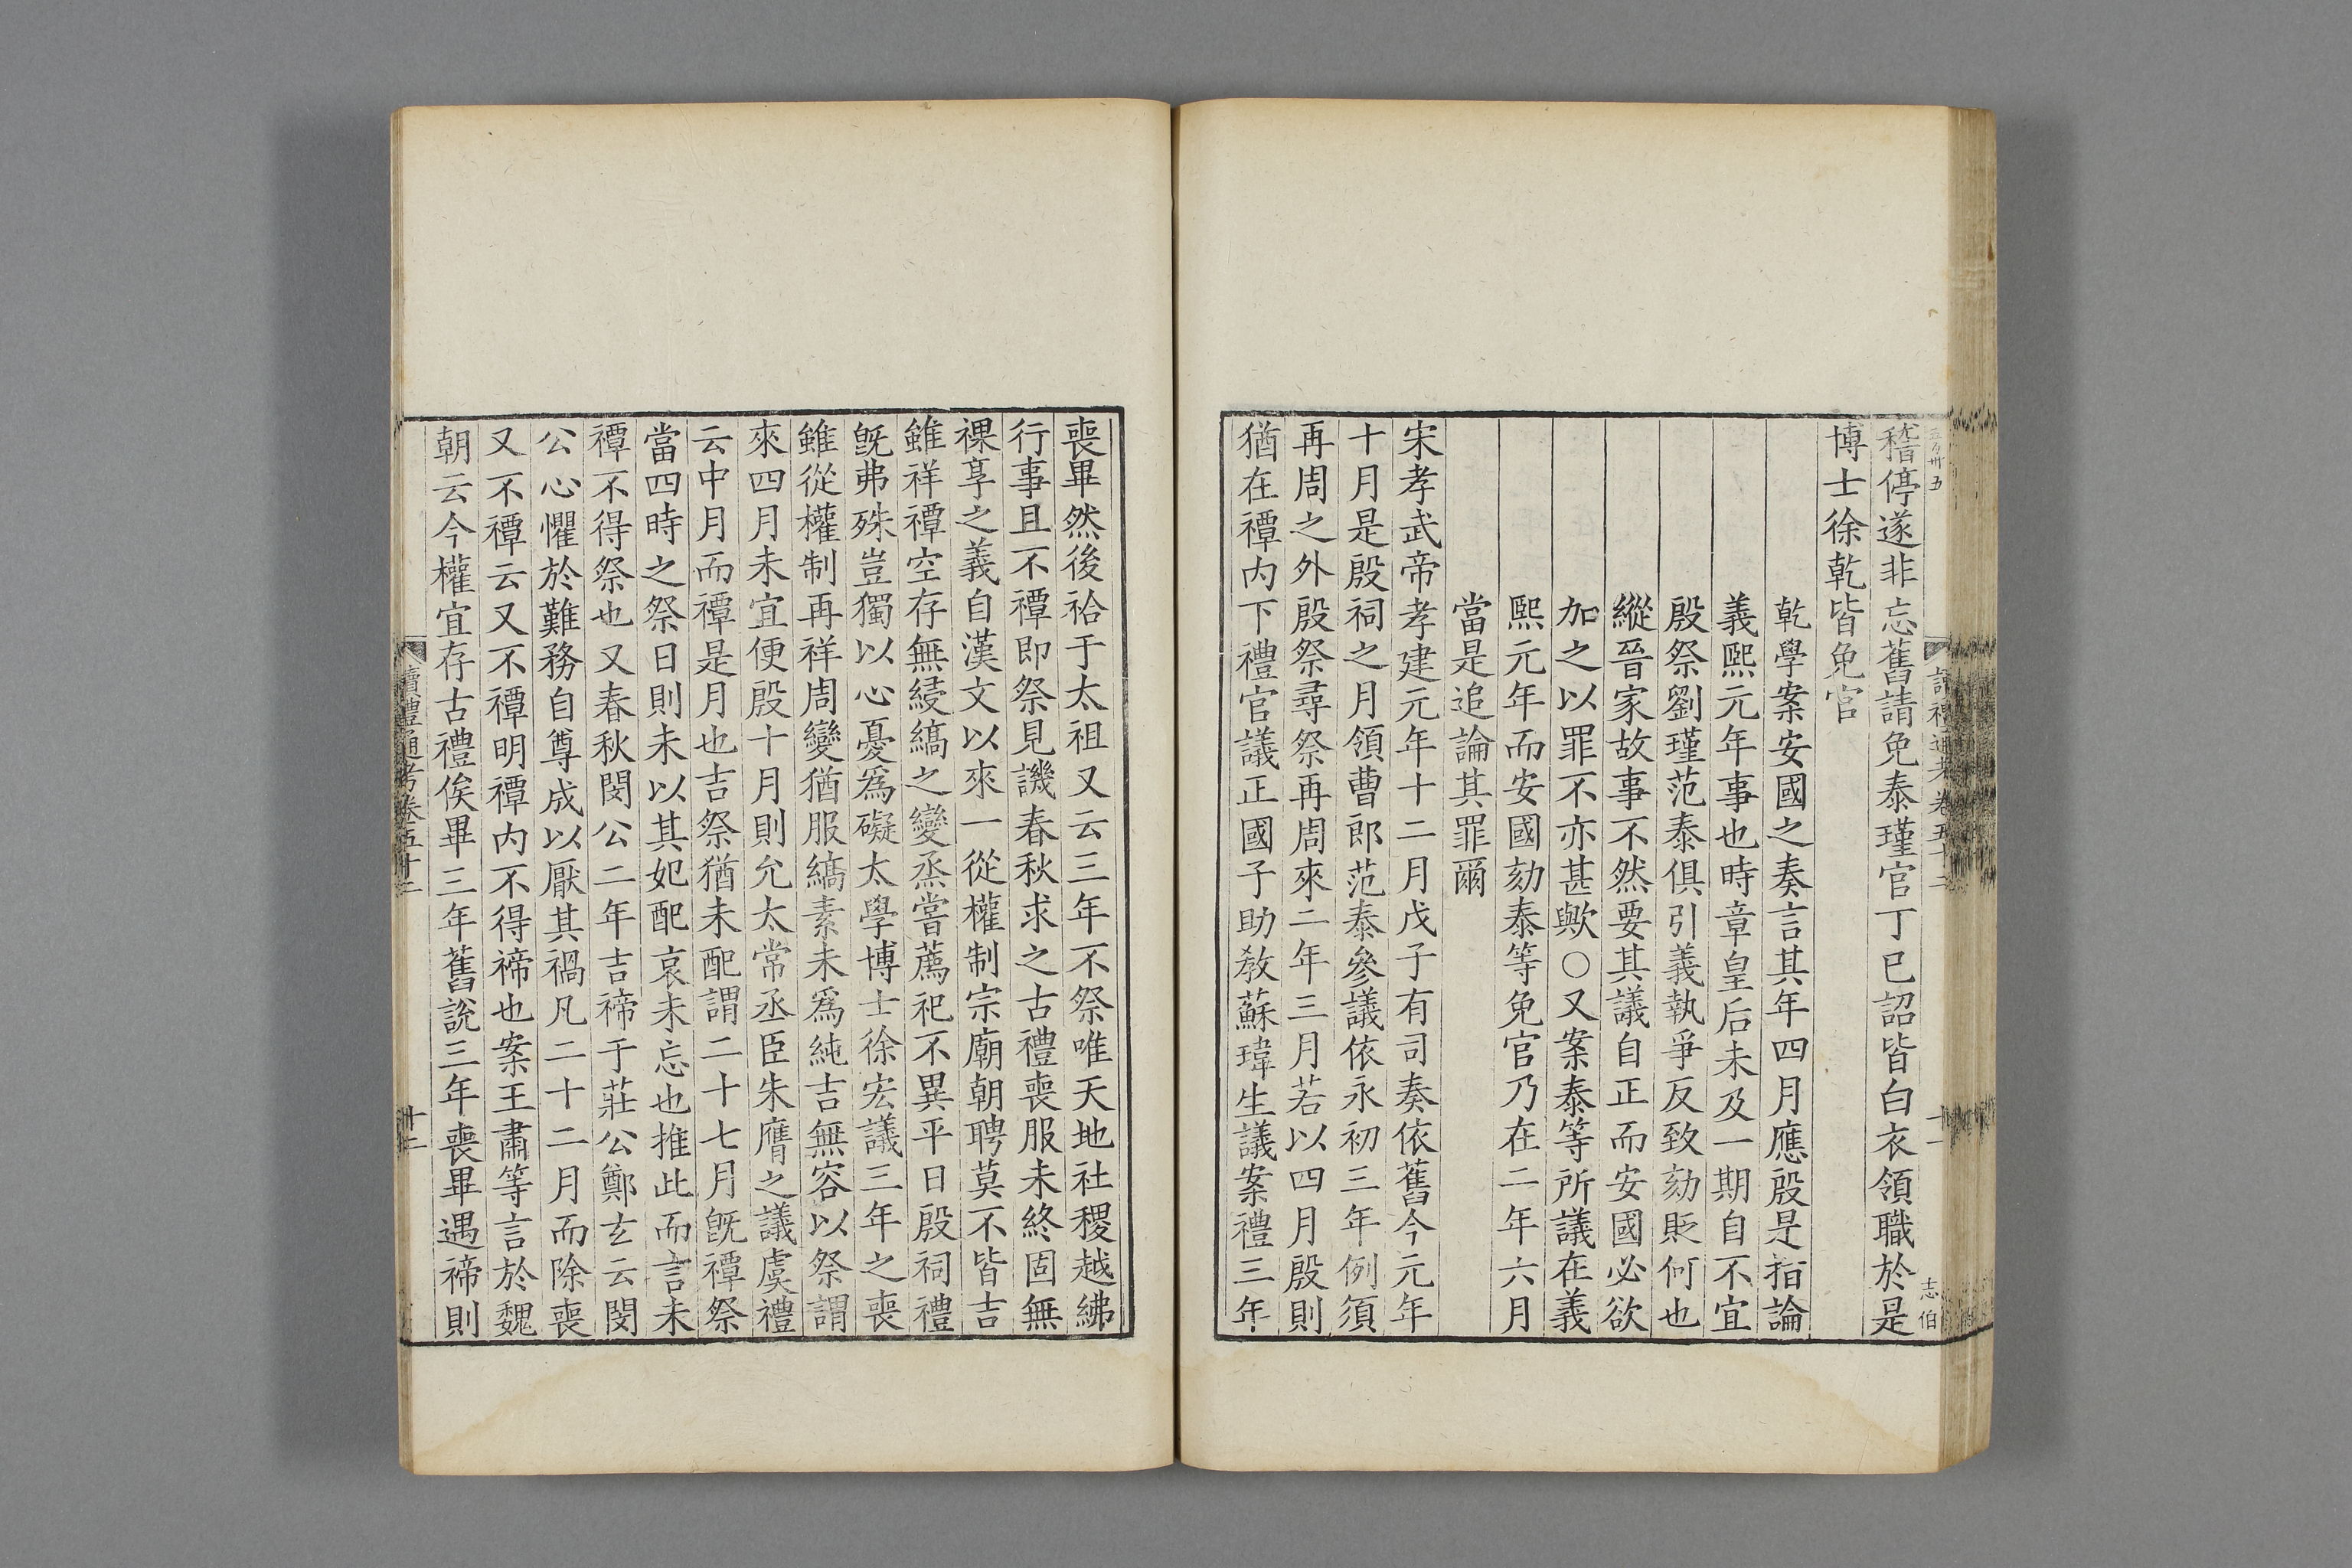 稽停遂非忘舊請免泰瑾官丁巳詔皆白衣領職於是
博士徐乾皆免官
乾學案安國之奏言其年四月應殷是指論
義熙元年事也時章皇后未及一期自不宜
殷祭劉瑾范泰俱引義執爭反致劾貶何也
縱晉家故事不然要其議自正而安國必欲
加之以罪不亦甚歟○又案泰等所議在義
熙元年而安國劾泰等免官乃在二年六月
當是追論其罪爾
宋孝武帝孝建元年十二月戊子有司奏依舊今元年
十月是殷祠之月領曹郎范泰參議依永初三年例須
再周之外殷祭尋祭再周來二年三月若以四月殷則
猶在禫內下禮官議正國子助敎蘇瑋生議案禮三年
喪畢然後祫于太祖又云三年不祭唯天地社稷越紼
行事且不禫即祭見譏春秋求之古禮喪服未終固無
祼享之義自漢文以來一從權制宗廟朝聘莫不皆吉
雖祥禫空存無綅縞之變烝嘗薦祀不異平日殷祠禮
旣弗殊豈獨以心憂爲礙太學博士徐宏議三年之喪
雖從權制再祥周變猶服縞素未爲純吉無容以祭謂
來四月未宜便殷十月則允太常丞臣朱膺之議虞禮
云中月而禫是月也吉祭猶未配謂二十七月旣禫祭
當四時之祭日則未以其妃配哀未忘也推此而言未
禫不得祭也又春秋閔公二年吉禘于莊公鄭玄云閔
公心懼於難務自尊成以厭其禍凡二十二月而除喪
又不禫云又不禫明禫內不得禘也案王肅等言於魏
朝云今權宜存古禮俟畢三年舊說三年喪畢遇禘則
讀禮通考卷五十二
十二
讀禮通考 卷五十二
十一
志伯